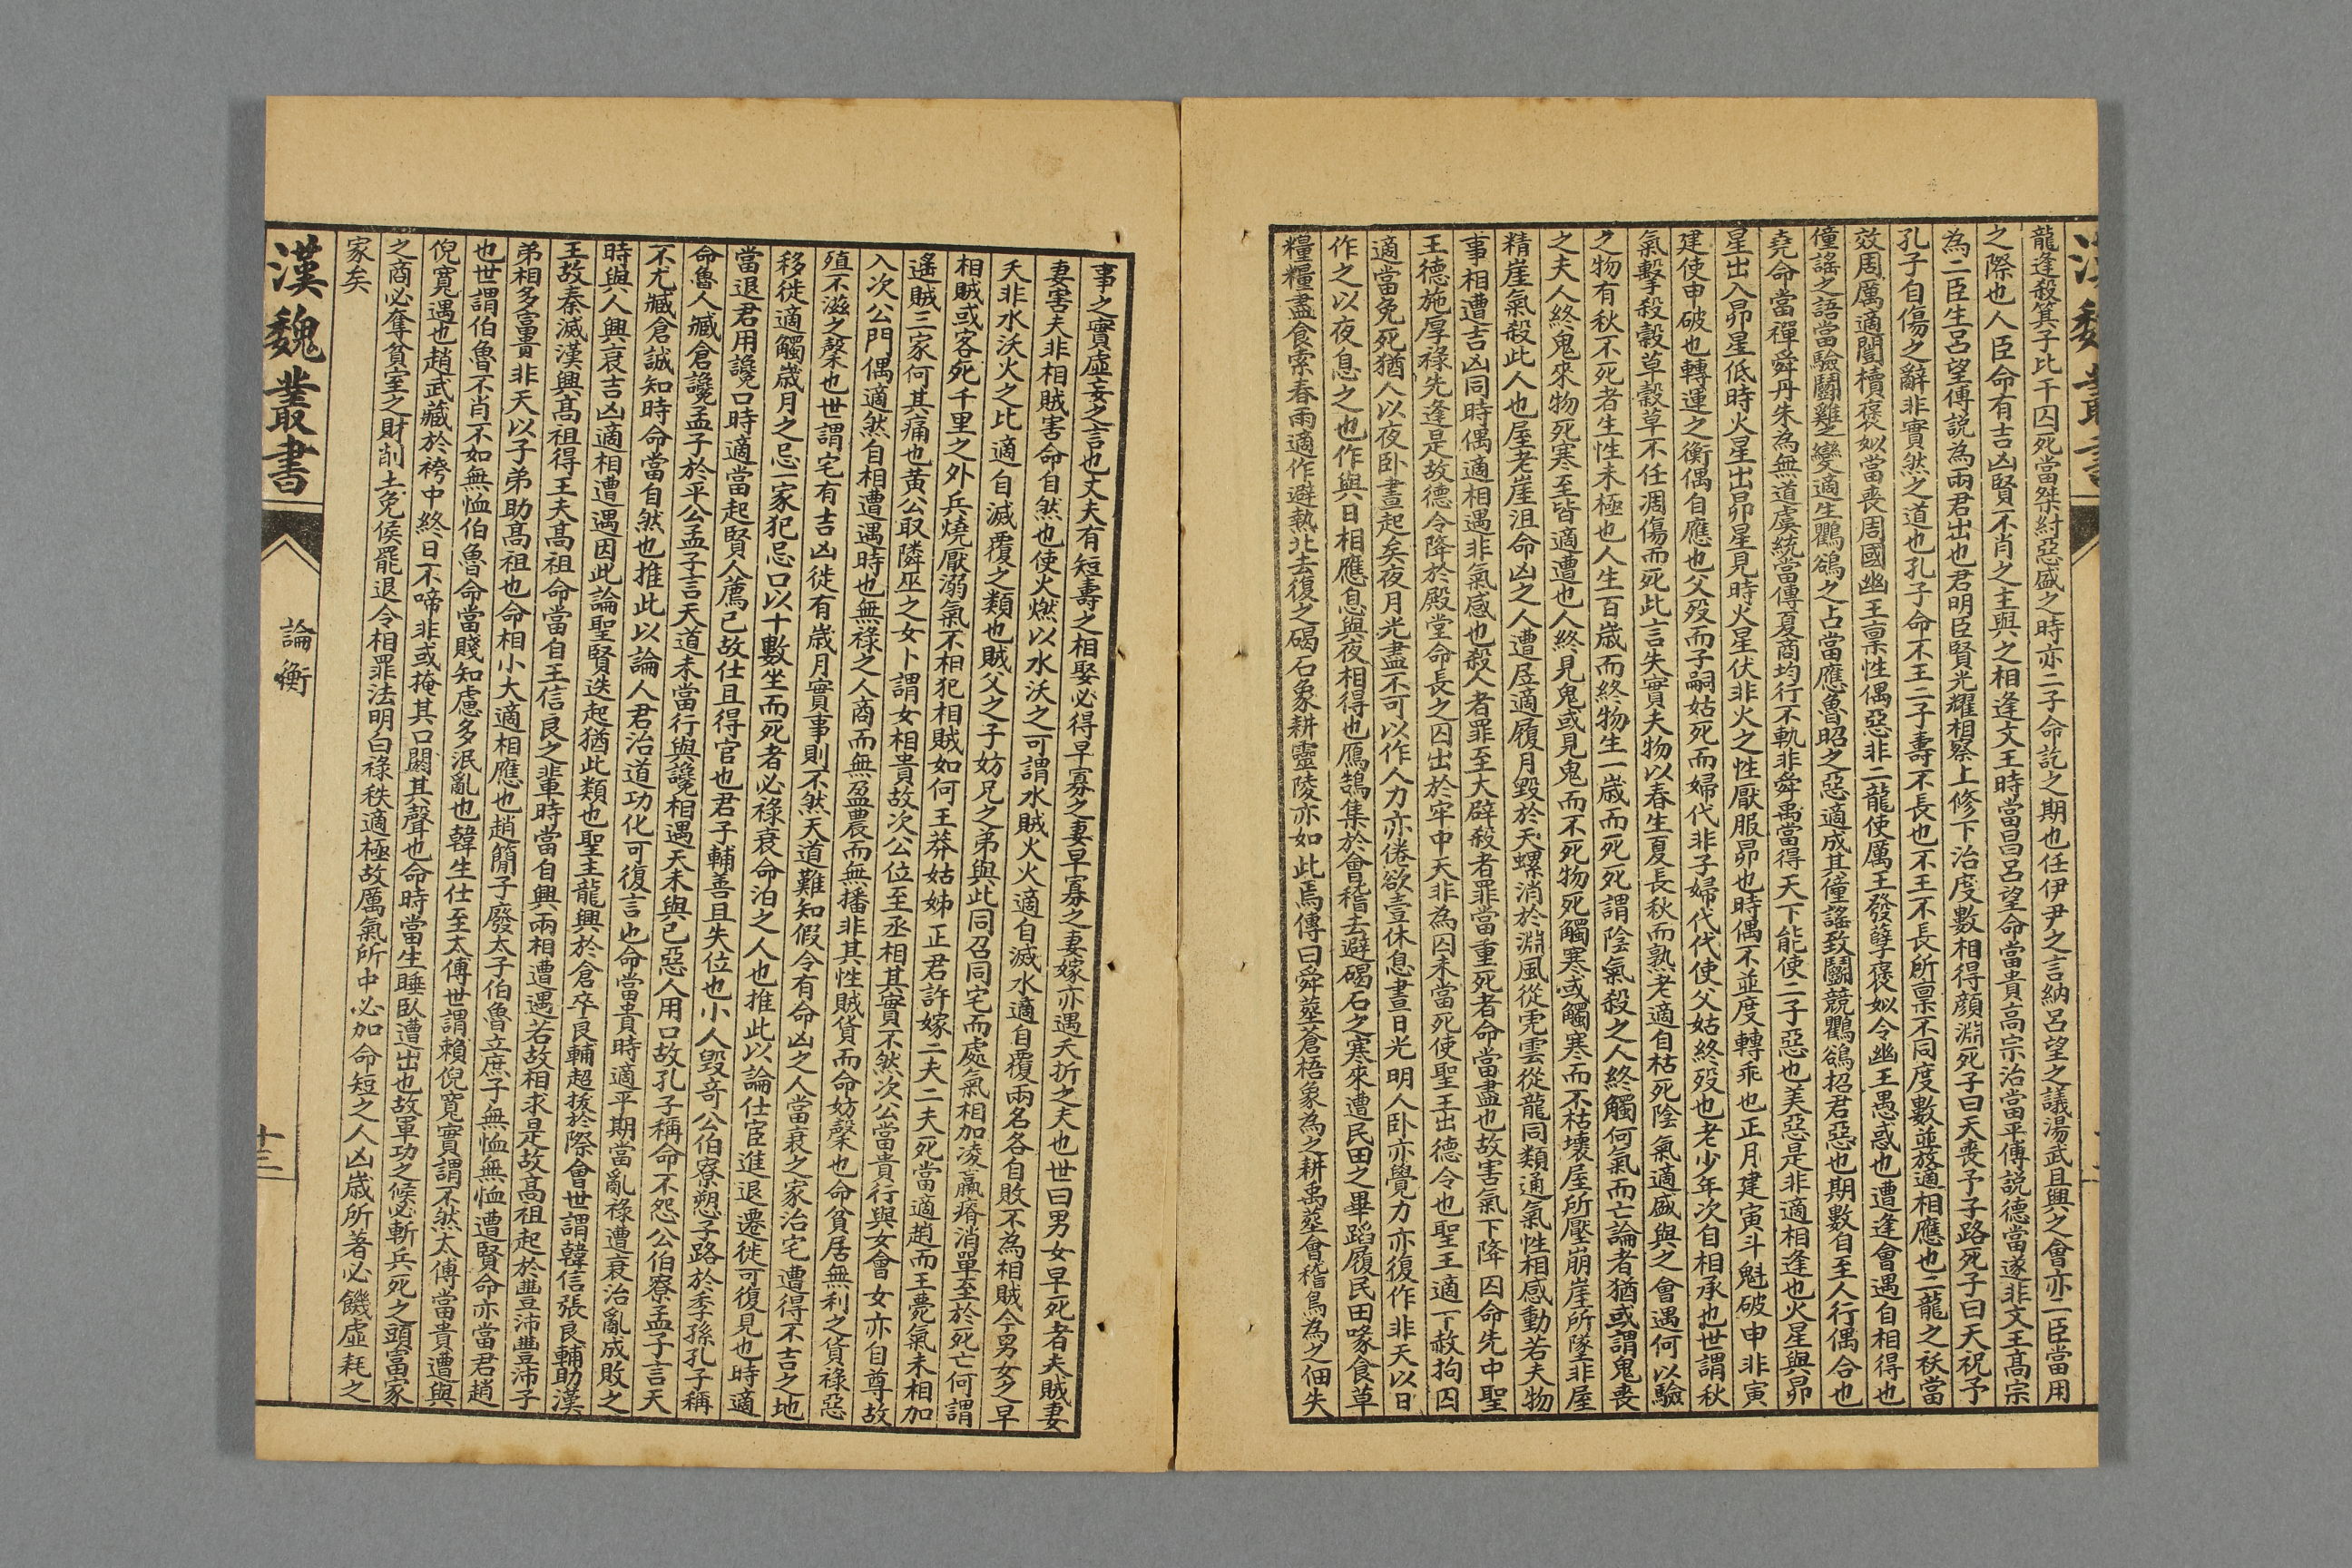 龍逢殺箕子比干囚死當桀紂惡盛之時亦二子命訖之期也任伊尹之言納呂望之議湯武且興之會亦二臣當用
之際也人臣命有吉凶賢不肖之主與之相逢文王時當昌呂望命當貴高宗治當平傅説德當遂非文王髙宗
為二臣生呂望傅説為兩君出也君明臣賢光耀相察上修下治度數相得顔淵死子曰天喪予子路死子曰天祝予
孔子自傷之辭非實然之道也孔子命不王二子壽不長也不王不長所禀不同度數並放適相應也二龍之祅當
效周厲適闓櫝褒姒當喪周國幽王禀性偶惡非二龍使厲王發孽褒姒令幽王愚惑也遭逢會遇自相得也
僮謠之語當驗鬭雞之變適生鸜鵒之占當應魯昭之惡適成其僮謠致鬭競鸜鵒招君惡也期數自至人行偶合也
堯命當禪舜丹朱為無道虞統當傳夏商均行不軌非舜禹當得天下能使二子惡也美惡是非適相逢也火星與昴
星出入昴星低時火星出昴星見時火星伏非火之性厭服昴也時偶不並度轉乖也正月建寅斗魁破申非寅
建使申破也轉運之衡偶自應也父歿而子嗣姑死而婦代非子婦代代使父姑終歿也老少年次自相承也世謂秋
氣擊殺穀草穀草不任凋傷而死此言失實夫物以春生夏長秋而熟老適自枯死陰氣適盛與之會遇何以驗
之物有秋不死者生性未極也人生百歲而終物生一歲而死死謂陰氣殺之人終觸何氣而亡論者猶或謂鬼喪
之夫人終鬼來物死寒至皆適遭也人終見鬼或見鬼而不死物死觸寒或觸寒而不枯壞屋所壓崩崖所墜非屋
精崖氣殺此人也屋老崖沮命凶之人遭居適履月毀於天螺消於淵風從虎雲從龍同類通氣性相感動若夫物
事相遭吉凶同時偶適相遇非氣感也殺人者罪至大辟殺者罪當重死者命當盡也故害氣下降囚命先中聖
王德施厚祿先逢是故德令降於殿堂命長之囚出於牢中天非為囚未當死使聖王出德令也聖王適下赦拘囚
適當免死猶人以夜卧晝起矣夜月光盡不可以作人力亦倦欲壹休息晝日光明人卧亦覺力亦復作非天以日
作之以夜息之也作與日相應息與夜相得也鴈鵠集於會稽去避碣石之寒來遭民田之畢蹈履民田喙食草
糧糧盡食索春雨適作避熱北去復之碣石象耕靈陵亦如此焉傳曰舜葬蒼梧象為之耕禹葬會稽鳥為之佃失
事之實虛妄之言也丈夫有短壽之相娶必得早寡之妻早寡之妻嫁亦遇夭折之夫也世曰男女早死者夫賊妻
妻害夫非相賊害命自然也使火燃以水沃之可謂水賊火火適自滅水適自覆兩名各自敗不為相賊今男女之早
夭非水沃火之比適自滅覆之類也賊父之子妨兄之弟與此同召同宅而處氣相加凌羸瘠消單至於死亡何謂
相賊或客死千里之外兵燒厭溺氣不相犯相賊如何王莽姑姊正君許嫁二夫二夫死當適趙而王薨氣未相加
遙賊三家何其痛也黃公取隣巫之女卜謂女相貴故次公位至丞相其實不然次公當貴行與女會女亦自尊故
入次公門偶適然自相遭遇時也無祿之人商而無盈農而無播非其性賊貨而命妨槩也命貧居無利之貨祿惡
殖不滋之槩也世謂宅有吉凶徙有歲月實事則不然天道難知假令有命凶之人當衰之家治宅遭得不吉之地
移徙適觸歲月之忌一家犯忌口以十數坐而死者必祿衰命泊之人也推此以論仕宦進退遷徙可復見也時適
當退君用讒口時適當起賢人薦己故仕且得官也君子輔善且失位也小人毀奇公伯寮愬子路於季孫孔子稱
命魯人臧倉讒孟子於平公孟子言天道未當行與讒相遇天未與己惡人用口故孔子稱命不怨公伯寮孟子言天
不尤臧倉誠知時命當自然也推此以論人君治道功化可復言也命當貴時適平期當亂祿遭衰治亂成敗之
時與人興衰吉凶適相遭遇因此論聖賢迭起猶此類也聖主龍興於倉卒良輔超拔於際會世謂韓信張良輔助漢
王故秦滅漢興髙祖得王夫髙祖命當自王信良之輩時當自興兩相遭遇若故相求是故髙祖起於豐沛豐沛子
弟相多富貴非天以子弟助髙祖也命相小大適相應也趙簡子廢太子伯魯立庶子無恤無恤遭賢命亦當君趙
也世謂伯魯不肖不如無恤伯魯命當賤知慮多泯亂也韓生仕至太傅世謂賴倪寬實謂不然太傅當貴遭與
倪寬遇也趙武藏於袴中終日不啼非或掩其口閼其聲也命時當生睡臥遭出也故軍功之候必斬兵死之頭富家
之商必奪貧室之財削土免侯罷退令相罪法明白祿秩適極故厲氣所中必加命短之人凶歲所著必饑虛耗之
家矣
漢魏叢書
論衡
十三